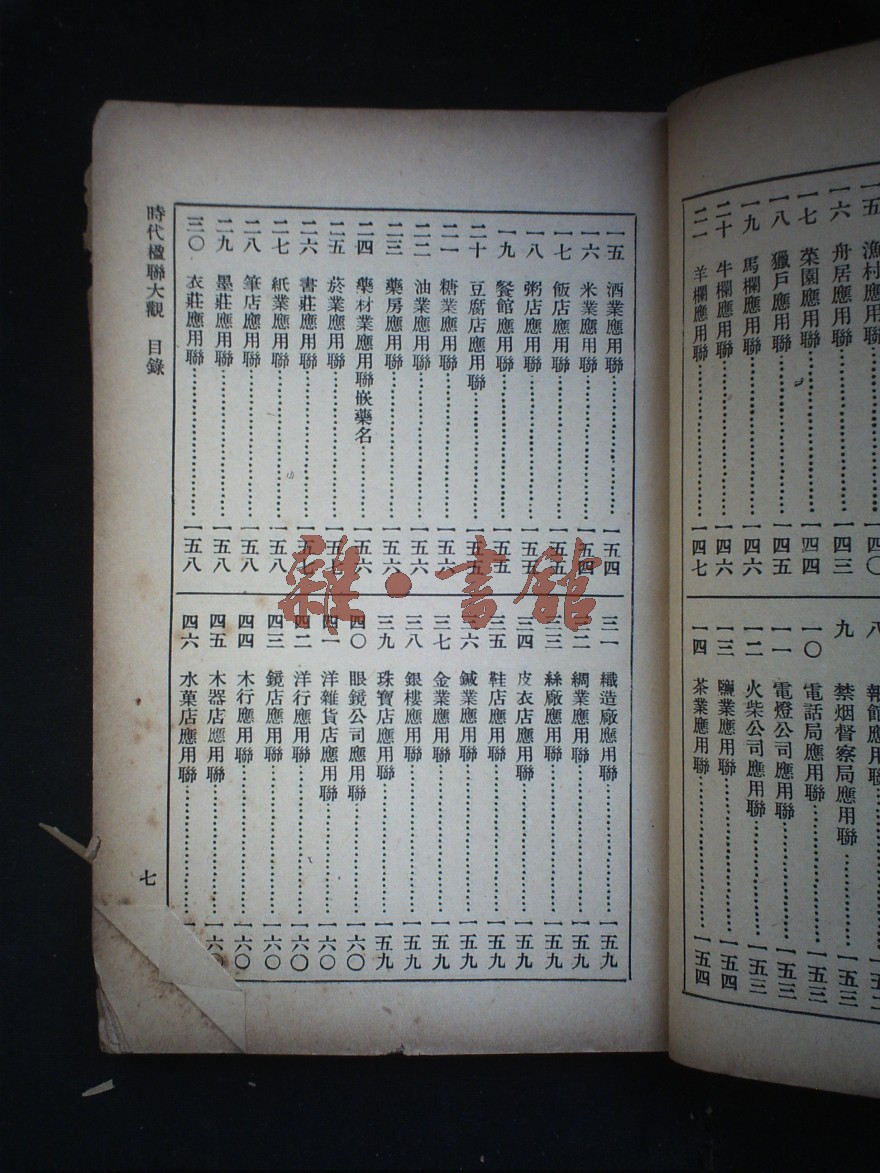 一五 漁村應用聯 一四〇
一六 舟居應用聯 一四三
一七 菜園應用聯 一四四
一八 獵戶應用聯 一四五
一九 馬欄應用聯 一四六
二十 牛欄應用聯 一四六
二一 羊欄應用聯 一四七
八 報館應用聯
九 禁烟督察局應用聯 一五三
一〇 電話局應用聯 一五三
一一 電燈公司應用聯 一五三
一二 火柴公司應用聯 一五三
一三 鹽業應用聯 一五四
一四 茶業應用聯 一五四
一五 酒業應用聯 一五四
一六 米業應用聯 一五四
一七 飯店應用聯 一五五
一八 粥店應用聯 一五五
一九 餐館應用聯 一五五
二十 豆腐店應用聯 一五五
二一 糖業應用聯 一五六
二二 油業應用聯 一五六
二三 藥房應用聯 一五六
二四 藥材業應用聯嵌藥名 一五六
二五 菸業應用聯 一五七
二六 書莊應用聯 一五七
二七 紙業應用聯 一五八
二八 筆店應用聯 一五八
二九 墨莊應用聯 一五八
三〇 衣莊應用聯 一五八
三一 織造廠應用聯 一五九
三二 綢業應用聯 一五九
三三 絲廠應用聯 一五九
三四 皮衣店應用聯 一五九
三五 鞋店應用聯 一五九
三六 鍼業應用聯 一五九
三七 金業應用聯 一五九
三八 銀樓應用聯 一五九
三九 珠寶店應用聯 一五九
四〇 眼鏡公司應用聯 一六〇
四一 洋雜貨店應用聯 一六〇
四二 洋行應用聯 一六〇
四三 鏡店應用聯 一六〇
四四 木行應用聯 一六〇
四五 木器店應用聯 一六〇
四六 水菓店應用聯
時代楹聯大觀 目錄 七
雜·書館